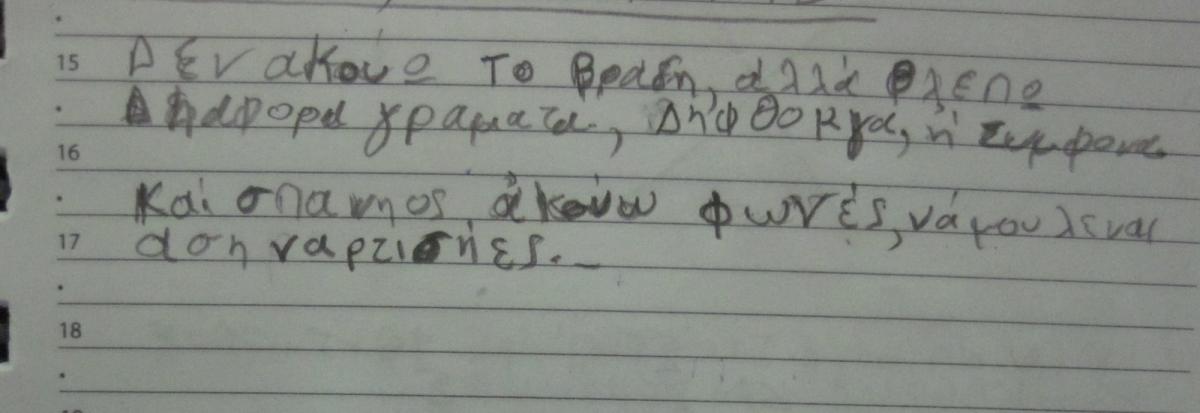 15 Δεν ακούο το βραδη, αλλά βλεπο
δηάφορα γραματα, Δηφθοκγα, ή συμφονα
16
και σπανηος ακούω φωνές, νά μου λεναι
17 αση ναρτισήες.
18